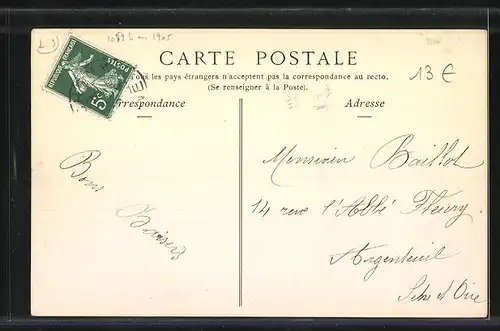 L 3
1089 4 au 1905
CARTE POSTALE
Tous les pays étrangers n'acceptent pas la correspondance au recto.
(Se renseigner à la Poste).
13 €
Correspondance
Adresse
RÉPUBLIQUE FRANÇAISE
POSTES
5c
Bons
Baisers
Monsieur Baillot
14 rue l'Abbé Fleury
Argenteuil
Seine et Oise